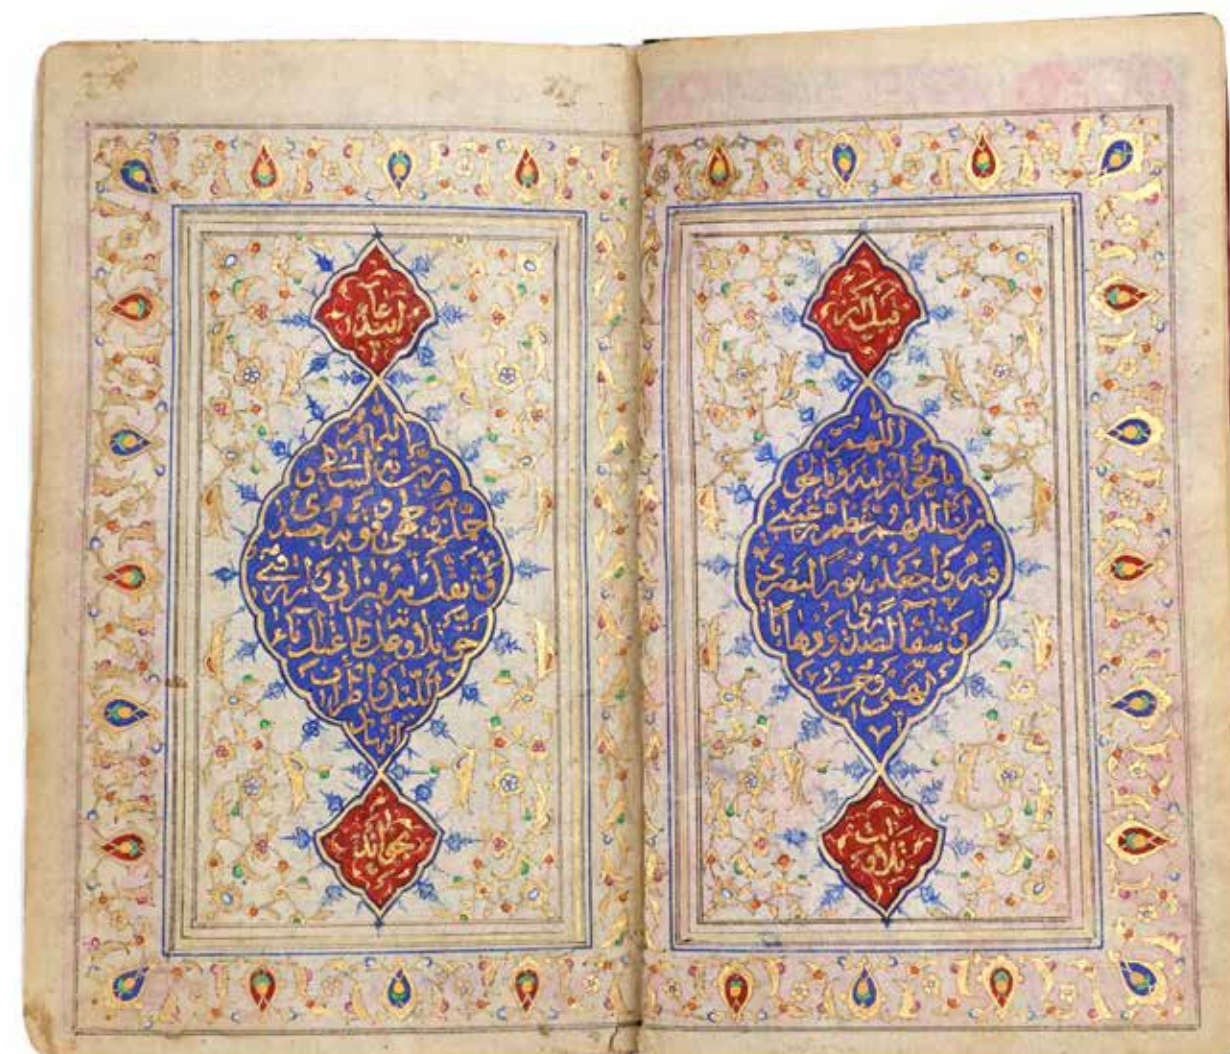 قبل از
اللهم
بالحق انزلته و بالحق
نزل اللهم عظم رغبتي
فيه واجعله نورا لبصري
و شفاء لصدري و ذهابا
لهمي و حزني
تلاوت
ابتداء
اللهم
زين به لساني و
جمل به وجهي و قو به جسدي
و ثقل به ميزاني و ارزقني
حق تلاوته على طاعتك آناء
الليل و اطراف
النهار
بخواند